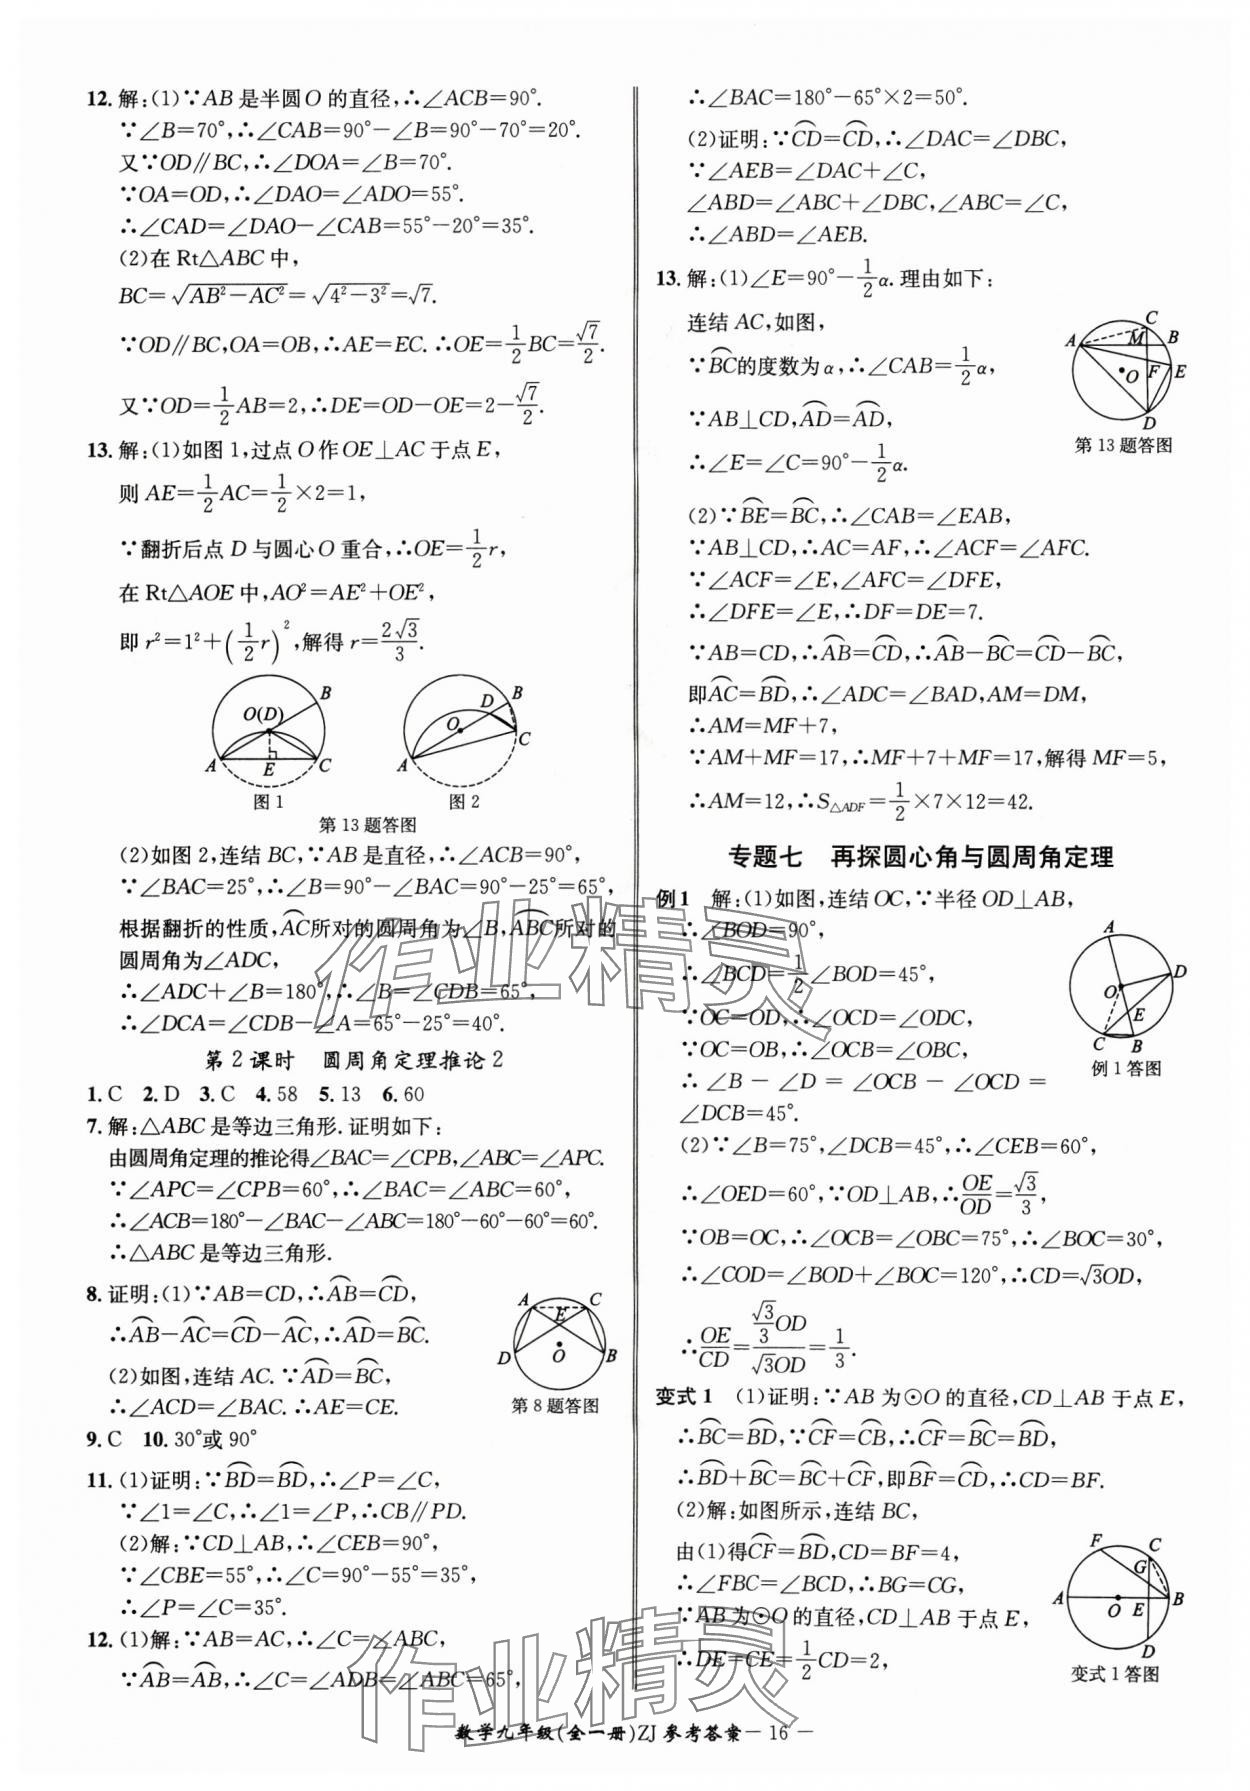 12. 解:(1)∵AB 是半圆 O 的直径,∴∠ACB=90°.
∵∠B=70°,∴∠CAB=90°-∠B=90°-70°=20°.
又∵OD∥BC,∴∠DOA=∠B=70°.
∵OA=OD,∴∠DAO=∠ADO=55°.
∴∠CAD=∠DAO-∠CAB=55°-20°=35°.
(2)在 Rt△ABC 中,
BC=√(AB²-AC²)=√(4²-3²)=√7.
∵OD∥BC,OA=OB,∴AE=EC.∴OE=1/2BC=√7/2.
又∵OD=1/2AB=2,∴DE=OD-OE=2-√7/2.
13. 解:(1)如图 1,过点 O 作 OE⊥AC 于点 E,
则 AE=1/2AC=1/2×2=1,
∵翻折后点 D 与圆心 O 重合,∴OE=1/2r,
在 Rt△AOE 中,AO²=AE²+OE²,
即 r²=1²+(1/2r)²,解得 r=2√3/3.
B
O(D)
A E C
图 1
D B
O
C
A
图 2
第 13 题答图
(2)如图 2,连结 BC,∵AB 是直径,∴∠ACB=90°,
∵∠BAC=25°,∴∠B=90°-∠BAC=90°-25°=65°,
根据翻折的性质,⌒AC所对的圆周角为∠B,⌒ABC所对的
圆周角为∠ADC,
∴∠ADC+∠B=180°,∴∠B=∠CDB=65°,
∴∠DCA=∠CDB-∠A=65°-25°=40°.
第 2 课时 圆周角定理推论 2
1. C 2. D 3. C 4. 58 5. 13 6. 60
7. 解:△ABC 是等边三角形. 证明如下:
由圆周角定理的推论得∠BAC=∠CPB,∠ABC=∠APC.
∵∠APC=∠CPB=60°,∴∠BAC=∠ABC=60°,
∴∠ACB=180°-∠BAC-∠ABC=180°-60°-60°=60°.
∴△ABC 是等边三角形.
8. 证明:(1)∵AB=CD,∴⌒AB=⌒CD,
∴⌒AB-⌒AC=⌒CD-⌒AC,∴⌒AD=⌒BC.
(2)如图,连结 AC.∵⌒AD=⌒BC,
∴∠ACD=∠BAC.∴AE=CE.
A C
E
D O B
第 8 题答图
9. C 10. 30°或 90°
11. (1)证明:∵⌒BD=⌒BD,∴∠P=∠C,
∵∠1=∠C,∴∠1=∠P,∴CB∥PD.
(2)解:∵CD⊥AB,∴∠CEB=90°,
∵∠CBE=55°,∴∠C=90°-55°=35°,
∴∠P=∠C=35°.
12. (1)解:∵AB=AC,∴∠C=∠ABC,
∵⌒AB=⌒AB,∴∠C=∠ADB=∠ABC=65°,
∴∠BAC=180°-65°×2=50°.
(2)证明:∵⌒CD=⌒CD,∴∠DAC=∠DBC,
∵∠AEB=∠DAC+∠C,
∠ABD=∠ABC+∠DBC,∠ABC=∠C,
∴∠ABD=∠AEB.
13. 解:(1)∠E=90°-1/2α. 理由如下:
连结 AC,如图,
∵⌒BC的度数为 α,∴∠CAB=1/2α,
∵AB⊥CD,⌒AD=⌒AD,
∴∠E=∠C=90°-1/2α.
C
A M B
O F E
D
第 13 题答图
(2)∵⌒BE=⌒BC,∴∠CAB=∠EAB,
∵AB⊥CD,∴AC=AF,∴∠ACF=∠AFC.
∵∠ACF=∠E,∠AFC=∠DFE,
∴∠DFE=∠E,∴DF=DE=7.
∵AB=CD,∴⌒AB=⌒CD,∴⌒AB-⌒BC=⌒CD-⌒BC,
即⌒AC=⌒BD,∴∠ADC=∠BAD,AM=DM,
∴AM=MF+7,
∵AM+MF=17,∴MF+7+MF=17,解得 MF=5,
∴AM=12,∴S△ADF=1/2×7×12=42.
专题七 再探圆心角与圆周角定理
例 1 解:(1)如图,连结 OC,∵半径 OD⊥AB,
∴∠BOD=90°,
∴∠BCD=1/2∠BOD=45°,
∵OC=OD,∴∠OCD=∠ODC,
∵OC=OB,∴∠OCB=∠OBC,
∴∠B-∠D=∠OCB-∠OCD=
∠DCB=45°.
A
D
O
E
C B
例 1 答图
(2)∵∠B=75°,∠DCB=45°,∴∠CEB=60°,
∴∠OED=60°,∵OD⊥AB,∴OE/OD=√3/3,
∵OB=OC,∴∠OCB=∠OBC=75°,∴∠BOC=30°,
∴∠COD=∠BOD+∠BOC=120°,∴CD=√3OD,
∴OE/CD=(√3/3OD)/(√3OD)=1/3.
变式 1 (1)证明:∵AB 为⊙O 的直径,CD⊥AB 于点 E,
∴⌒BC=⌒BD,∵⌒CF=⌒CB,∴⌒CF=⌒BC=⌒BD,
∴⌒BD+⌒BC=⌒BC+⌒CF,即⌒BF=⌒CD,∴CD=BF.
(2)解:如图所示,连结 BC,
由(1)得⌒CF=⌒BD,CD=BF=4,
∴∠FBC=∠BCD,∴BG=CG,
∵AB 为⊙O 的直径,CD⊥AB 于点 E,
∴DE=CE=1/2CD=2,
F C
G
A O E B
D
变式 1 答图
作业精灵
作业精灵
数学九年级(全一册)ZJ 参考答案 — 16 —